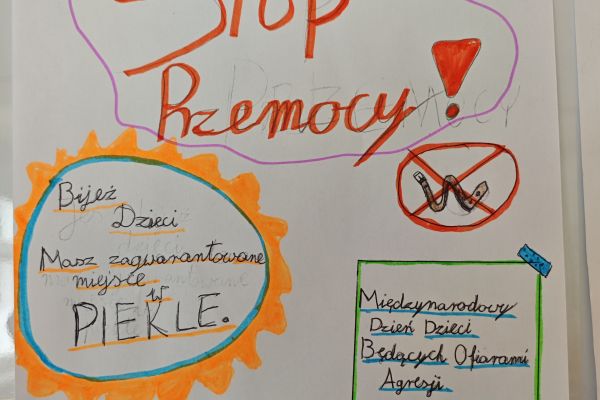 Stop
Przemocy!
Bijeż
Dzieci
Masz zagwarantowane
miejsce
w
PIEKLE.
Międzynarodowy
Dzień Dzieci
Będących Ofiarami
Agresji